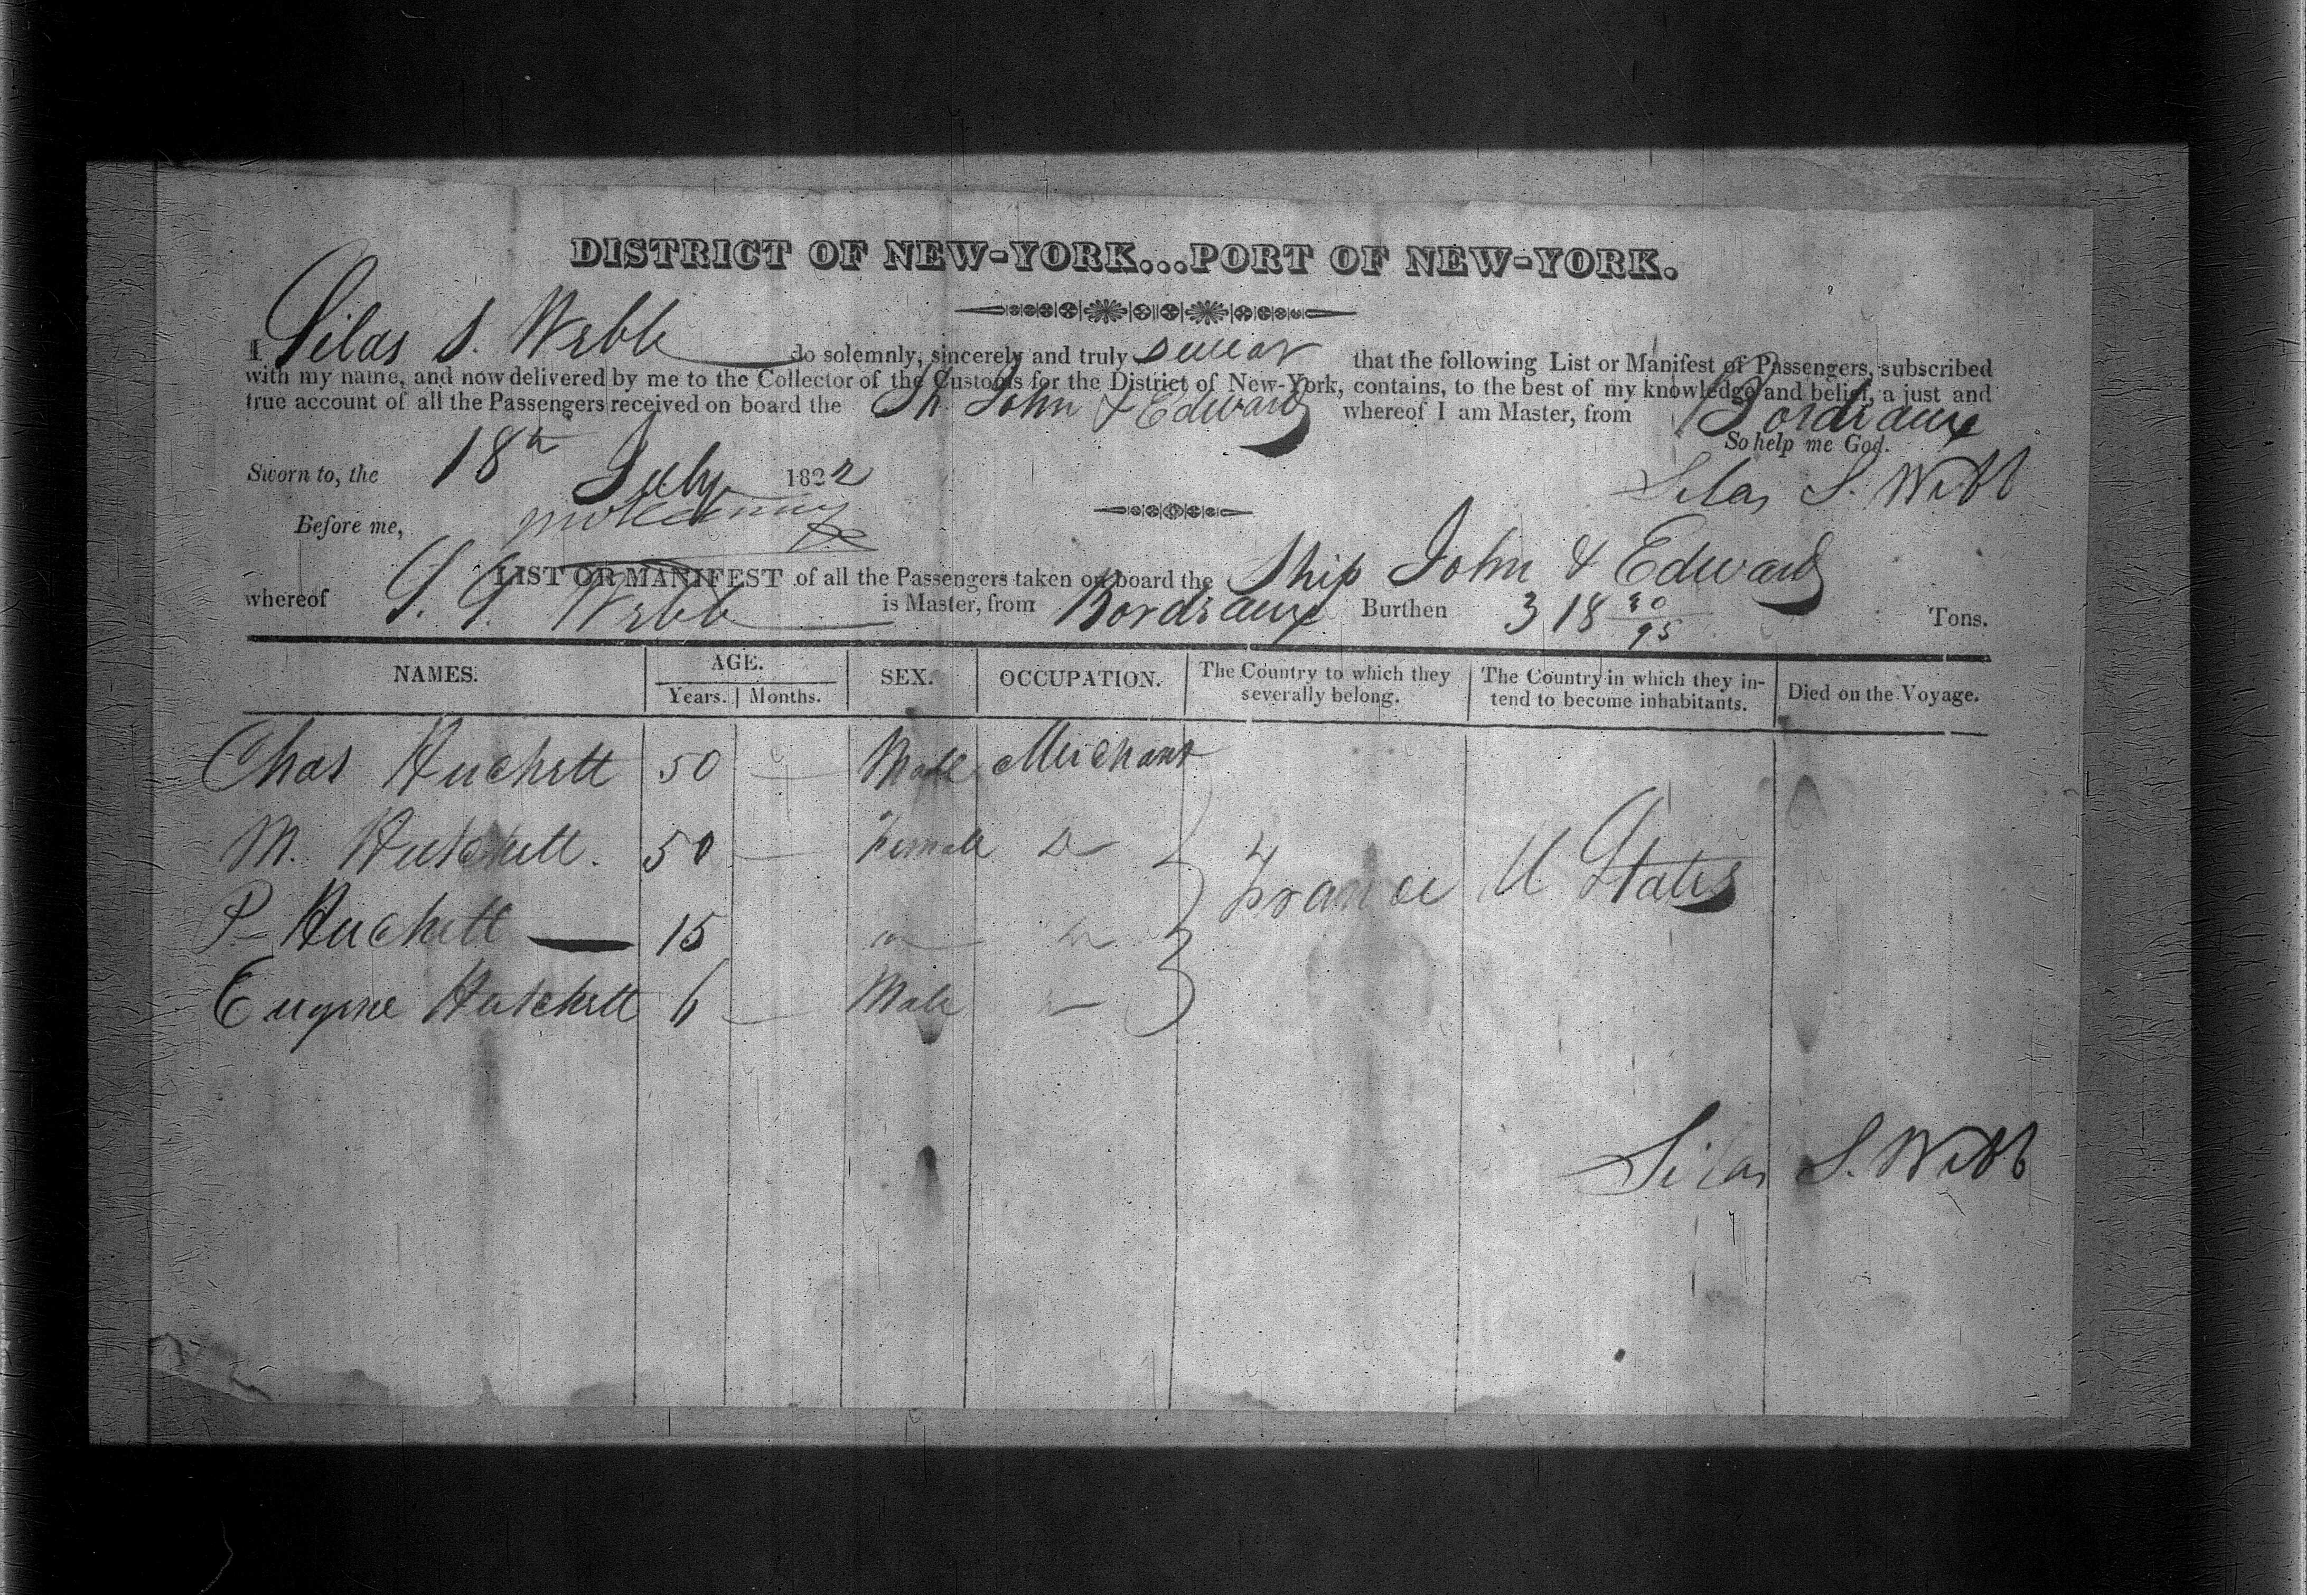 DISTRICT OF NEW-YORK...PORT OF NEW-YORK.
I Silas S. Webb do solemnly, sincerely and truly swear that the following List or Manifest of Passengers, subscribed
with my name, and now delivered by me to the Collector of the Customs for the District of New-York, contains, to the best of my knowledge and belief, a just and
true account of all the Passengers received on board the Sh. John & Edward whereof I am Master, from Bordeaux
So help me God.
Sworn to, the 18th July 1822 Silas S. Webb
Before me,
LIST OR MANIFEST of all the Passengers taken on board the Ship John & Edward
whereof S. S. Webb is Master, from Bordeaux Burthen 318 /95 Tons.
NAMES. AGE. SEX. OCCUPATION. The Country to which they severally belong. The Country in which they in- tend to become inhabitants. Died on the Voyage.
Years. Months.
Chas Huchett 50 — Male Merchant
M. Hutchett. 50 — Female Do
France U States
P- Huchett — 15 Do Do
Eugene Hutchett 6 — Male Do
Silas S. Webb